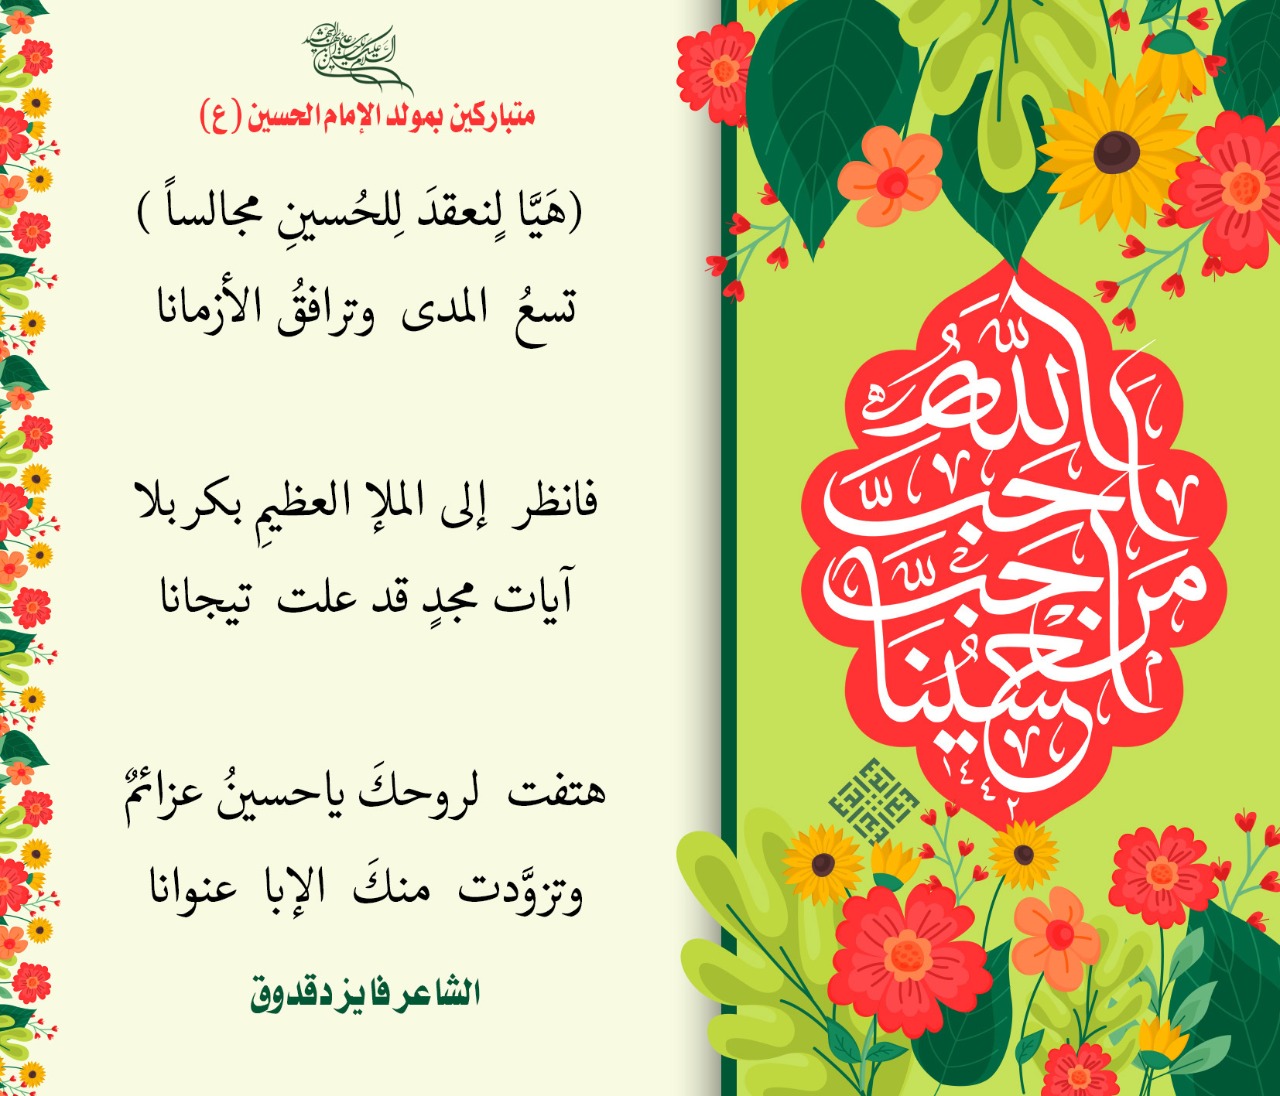 متباركين بمولد الإمام الحسين (ع)
(هَيَّا لِنعقدَ لِلحُسينِ مجالساً )
تسعُ المدى وترافقُ الأزمانا
فانظر إلى الملإ العظيمِ بكربلا
آيات مجدٍ قد علت تيجانا
هتفت لروحكَ ياحسينُ عزائمٌ
وتزوَّدت منكَ الإبا عنوانا
الشاعر فايز دقدوق
أحب الله
من أحب
حسينا
١٤٤٢